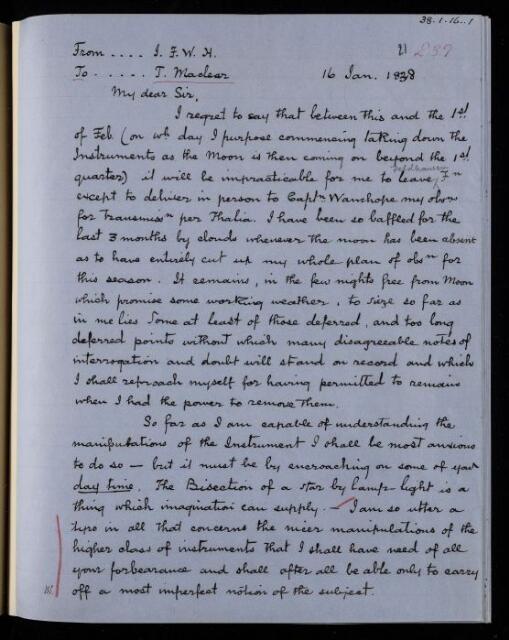 38.1.16..1
From .... J. F. W. H. 21 237
To ..... T. Maclear 16 Jan. 1838
My dear Sir,
I regret to say that between this and the 1st
of Feb (on wh day I purpose commencing taking down the
Instruments as the Moon is then coming on beyond the 1st
quarter) it will be impracticable for me to leave Feldhausen Fn
except to deliver in person to Captn Wauchope my obsns
for transmissn per Thalia. I have been so baffled for the
last 3 months by clouds whenever the moon has been absent
as to have entirely cut up my whole plan of obsn for
this season. It remains, in the few nights free from Moon
which promise some working weather, to seize so far as
in me lies some at least of those deferred, and too long
deferred points without which many disagreeable notes of
interrogation and doubt will stand on record and which
I shall reproach myself for having permitted to remain
when I had the power to remove them.
So far as I am capable of understanding the
manipulations of the Instrument I shall be most anxious
to do so — but it must be by encroaching on some of your
day time. The Bisection of a star by lamp light is a
thing which imagination can supply. — I am so utter a
tyro in all that concerns the nicer manipulations of the
higher class of instruments that I shall have need of all
your forbearance and shall after all be able only to carry
off a most imperfect notion of the subject.